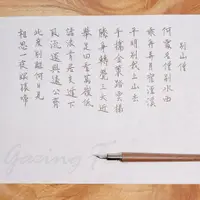 別山僧
何處名僧到水西
乘舟弄月宿涇溪
平明別我上山去
手攜金策踏雲梯
騰身轉覺三天近
舉足回看萬嶺低
謔浪肯居支遁下
風流還與遠公齊
此度別離何日見
相思一夜暝猿啼